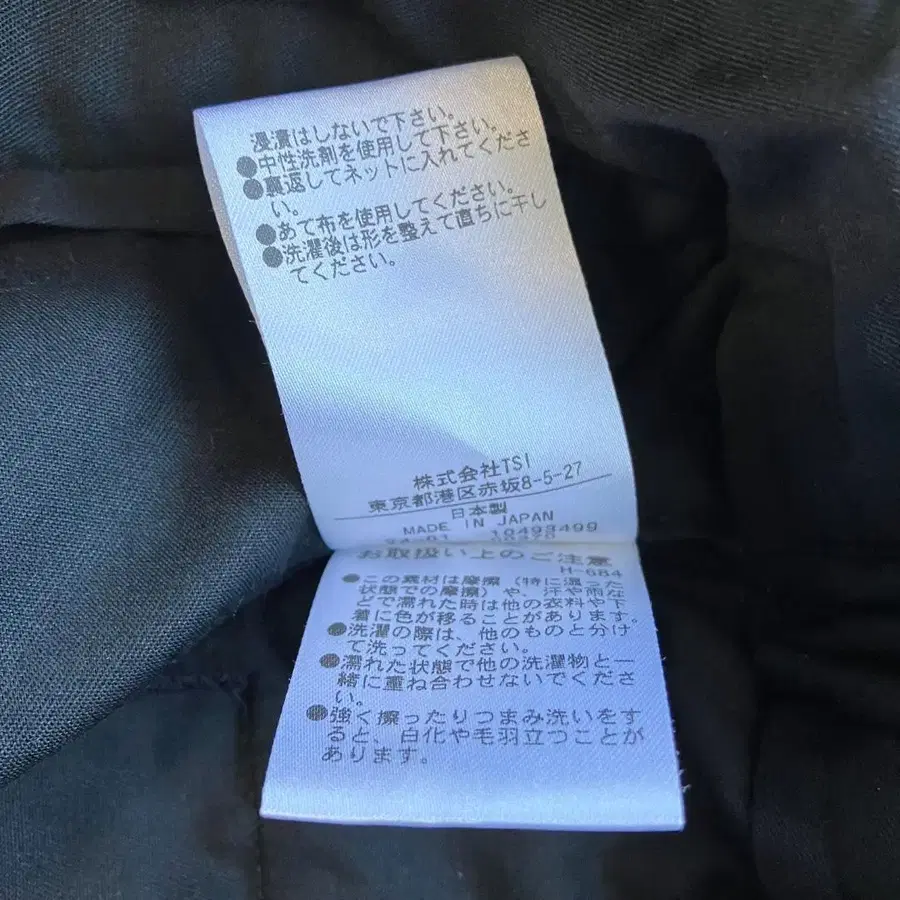 浸漬はしないで下さい。
●中性洗剤を使用して下さい。
●裏返してネットに入れてくださ
い。
●あて布を使用してください。
●洗濯後は形を整えて直ちに干し
てください。
株式会社TSI
東京都港区赤坂8-5-27
日本製
MADE IN JAPAN
10493499
お取扱い上のご注意
H-684
●この素材は摩擦（特に湿った
状態での摩擦）や、汗や雨な
どで濡れた時は他の衣料や下
着に色が移ることがあります。
●洗濯の際は、他のものと分け
て洗ってください。
●濡れた状態で他の洗濯物と一
緒に重ね合わせないでくださ
い。
●強く擦ったりつまみ洗いをす
ると、白化や毛羽立つことが
あります。